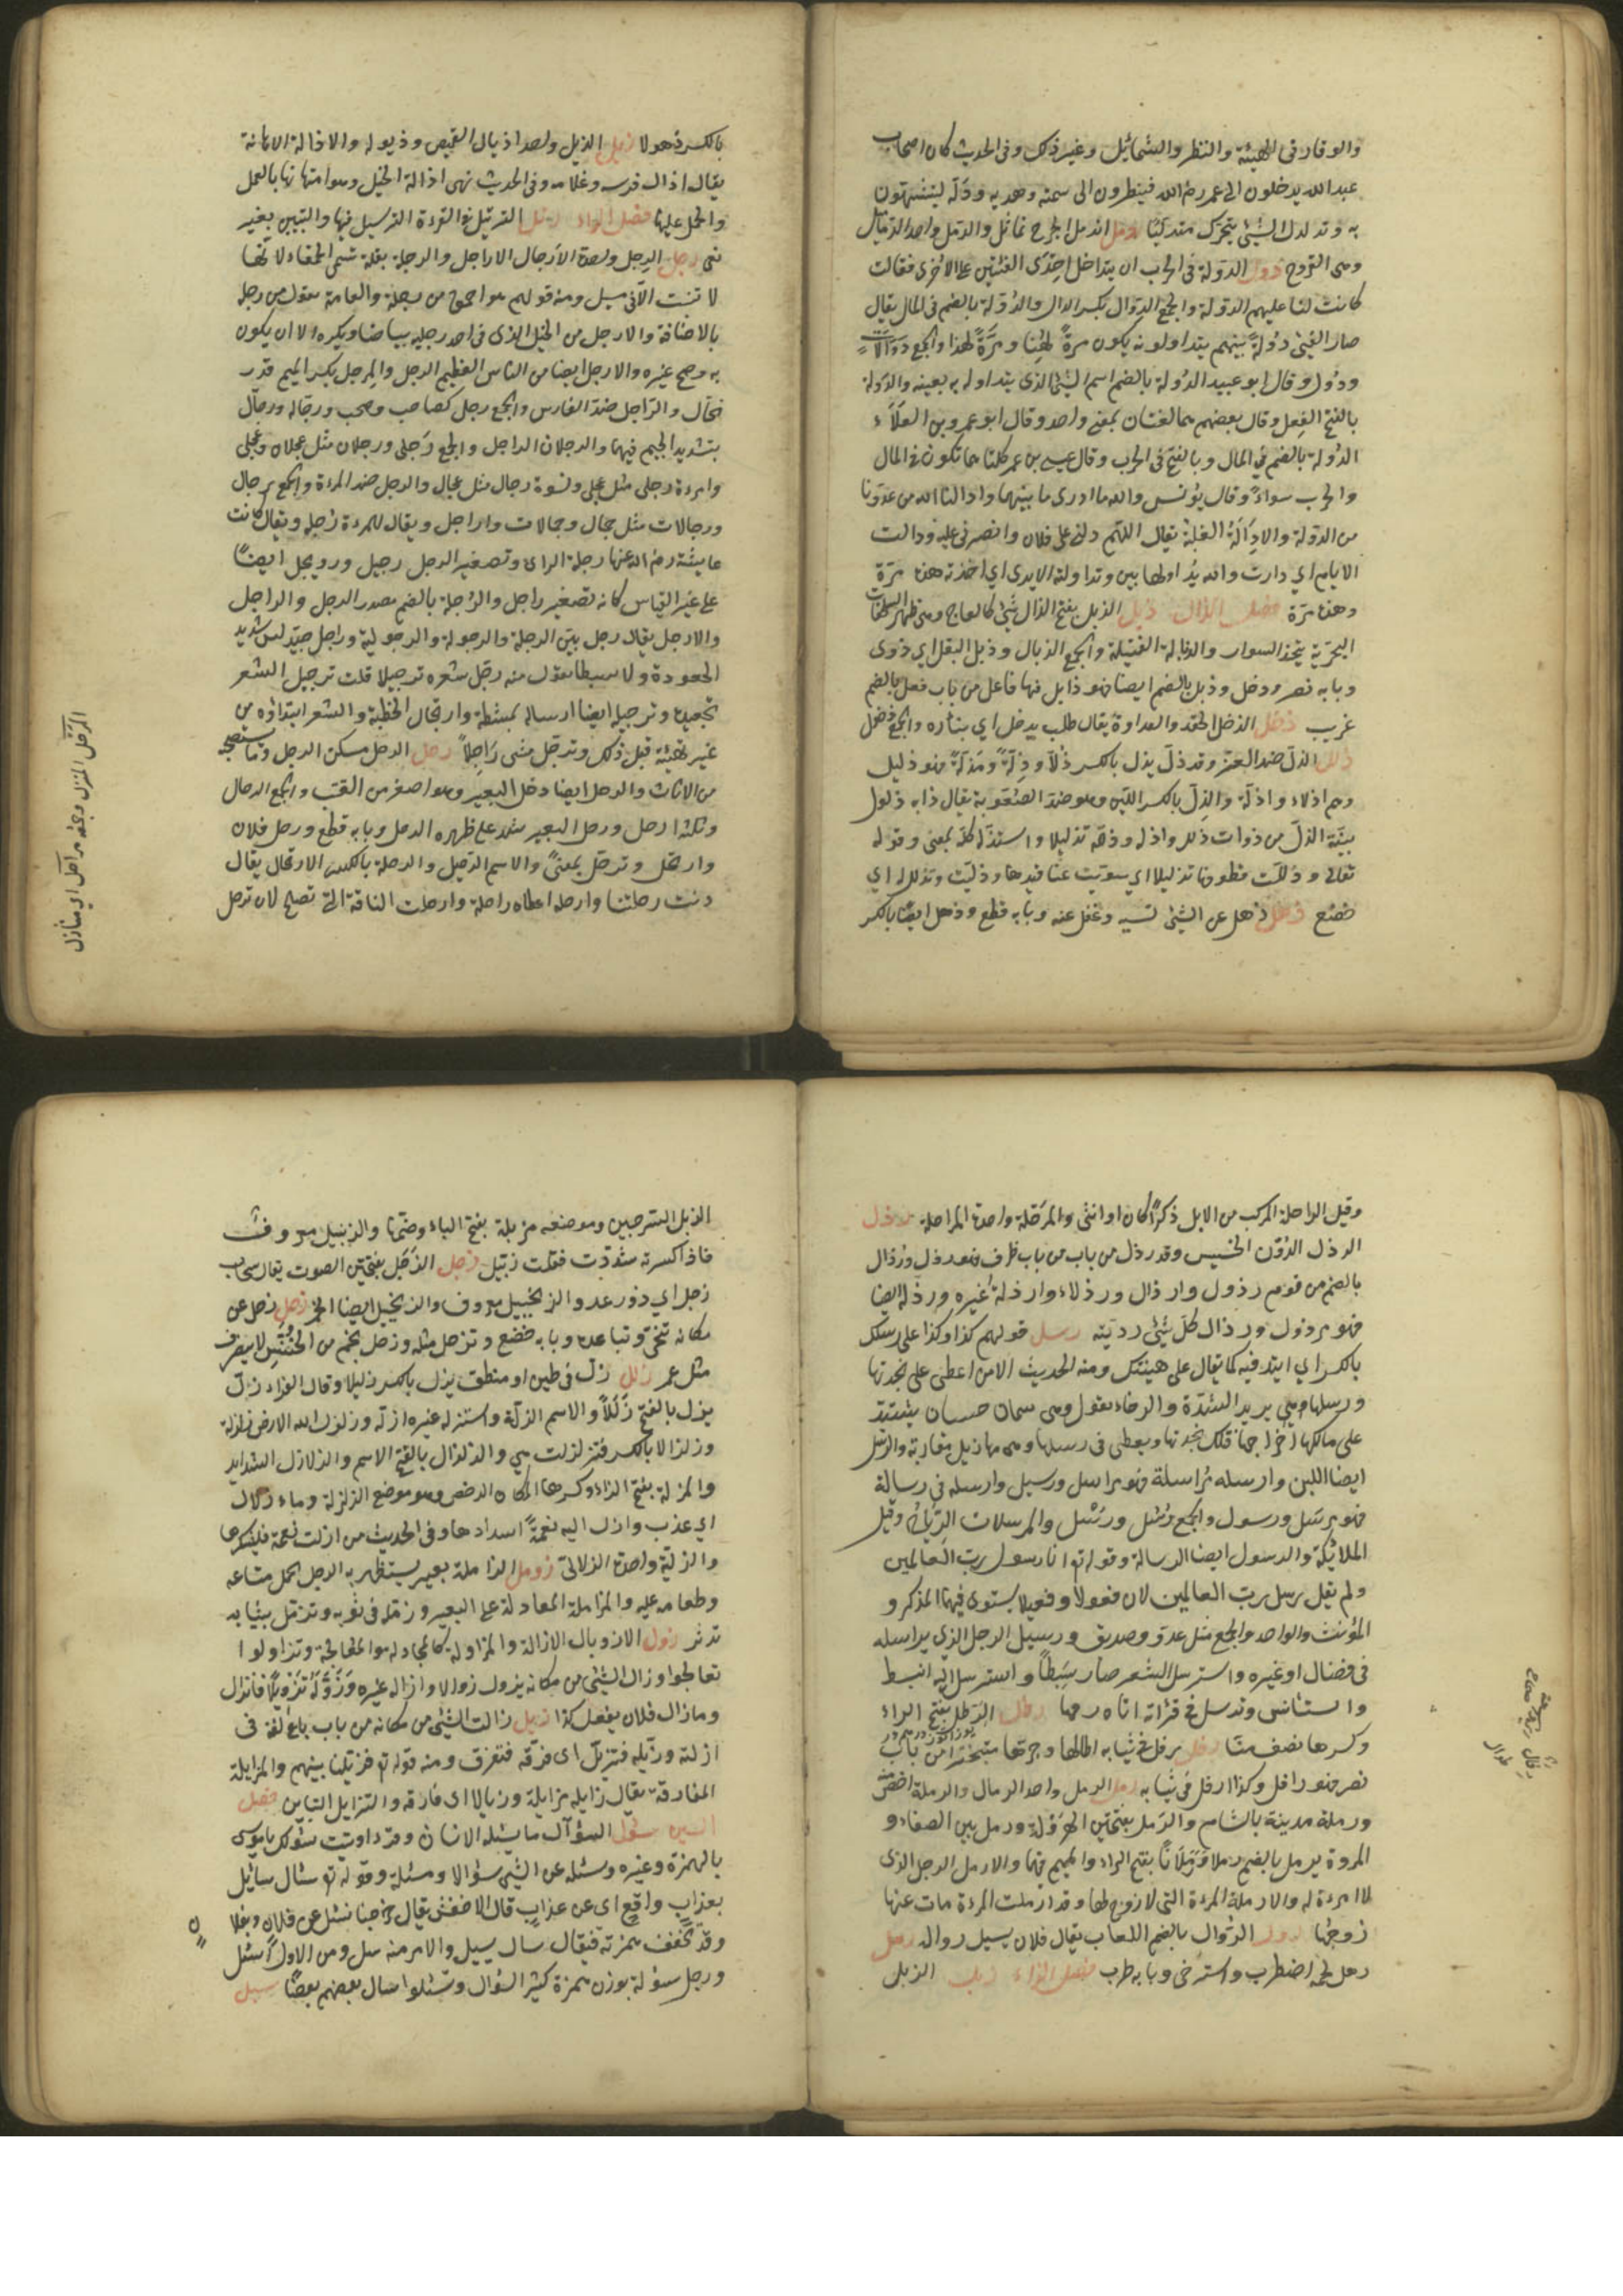 والوقار في الهيئة والنظر والشمائل وغير ذلك وفى الحديث كان اصحاب
عبد الله يدخلون الى عمر رضى الله فينظرون الى سمته وهديه ودَلّه ليتشبهون
به وتدلدل الشيئ يتحرك متدليًا دمل اندمل الجرح تماثل والدمل واحد الدماميل
وهى القروح دول الدولة فى الحرب ان يتداخل احدَى الفئتين على الاخرى فقالت
كانت لنا عليهم الدولة والجمع الدوال بكسر الدال والدُولة بالضم فى المال يقال
صار الفيئ دُولةً بينهم يتداولونه يكون مرةً لهٰذا ومرّةً لهذا والجمع دُوَلَات
ودُوَل وقال ابو عبيد الدُولة بالضم اسم الشيئ الذى يتداول به بعينه والدَولة
بالفتح الفِعل وقال بعضهم هما لغتان بمعنى واحد وقال ابو عمرو بن العَلَاء
الدُولة بالضم فى المال وبالفتح فى الحرب وقال عيسى بن عمر كلتاهما تكون فى المال
والحرب سواءً وقال يُونُس والله ما ادرى ما بينهما وادالنا الله من عدوّنا
من الدولة والادِالَةُ الغلبة يقال اللهم دلنى على فلان وانصرنى عليه ودالت
الايام اي دارت والله يُداولها بين وتداولته الايدى اي اخذته هذه مرّة
وهذه مرّة فصل الذال ذبل الذبل بفتح الذال شيئ كالعاج وهى ظهر السلحفات
البحرية يتخذ السوار والذبالة الفتيلة والجمع الذبال وذبل البقل اي ذوى
وبابه نصر ودخل وذبل بالضم ايضا فهو ذابل فيها فاعل من باب فعل بالضم
غريب ذحل الذحل الحقد والعداوة يقال طلب بذحل اي بثاره والجمع ذحول
ذلل الذلّ ضد العزّ وقد ذلّ يذل بالكسر ذُلّاً وذِلّةً ومَذلّةً فهو ذليل
وهم اذلاء واذلّة والذِلّ بالكسر اللين وهو ضد الصُعُوبة يقال دابه ذلول
بيّنة الذلّ من دوات ذلل واذله وذلّله تذليلا واستذلّه كلّه بمعنى وقوله
تعالى وذللت قطوفها تذليلا اي سويت عناقيدها وذليت وتذلل له اي
خضع ذهل ذهل عن الشيئ نسيه وغفل عنه وبابه قطع وذهل ايضًا بالكسر
بالكسر ذهولا ذيل الذيل واحد اذيال القميص وذيوله والاذالة الاهانة
يقال اذال فرسه وغلامه وفى الحديث نهى اذالة الخيل وهو امتهانها بالعمل
والحمل عليها فصل الراء رتل الترتيل فى القراءة الترسيل فيها والتبيين بغير
بغى رجل الرِجل واحدة الاَرجال الاراجل والرجلة بقلة تسمى الحمقاء لانّها
لا تنبت الّا فى مسيل ومنه قولهم هو احمق من رجلة والعامة تقول من رجله
بالاضافة والارجل من الخيل الذى فى احد رجليه بياضا ويكره الا ان يكون
به وضح غيره والارجل ايضا من الناس العظيم الرجل والمِرجل بكسر الميم قدر
نحاس والرَاجل ضدّ الفارس والجمع رجل كصاحب وصحب ورجّالة ورجّال
بتشديد الجيم فيهما والرجلان الراجل والجمع رَجلى ورجلان مثل عجلان وعجلى
وامرءة رجلى مثل عجلى ونسوة رجال مثل عجال والرجل ضد المرءة والجمع رجال
ورجالات مثل جمال وجمالات واراجل ويقال للمرءة رَجلة ويقال كانت
عايشة رضى الله عنها رجلة الراى وتصغير الرجل رجيل ورويجل ايضًا
على غير القياس كانه تصغير راجل والرُجلة بالضم مصدر الرجل والراجل
والارجل يقال رجل بيّن الرجلة والرجولة والرجولية وراجل جيّد ليس شديد
الجعودة ولا سبطا تقول منه رجّل شعره ترجيلا قلت ترجيل الشعر
تجعيده وترجيله ايضا ارساله بمشطه وارتجال الخطبة والشعر ابتداؤه من
غير تهيئة قبل ذلك وترجّل مشى رَاجِلاً رحل الرحل مسكن الرجل وما يستصحبه
من الاثاث والرحل ايضا رحل البعير وهو اصغر من القتب والجمع الرحال
وثلثة ارحل ورحل البعير شد على ظهره الرحل وبابه قطع ورحل فلان
وارتحل وترحّل بمعنىً والاسم الرّحيل والرحلة بالكسر الارتحال يقال
دنت رحلتنا وارحله اعطاه راحلة وارحلت الناقة التى تصلح لان ترحل
المرحل المنزل وجمعه مراحل اي منازل
وقيل الراحلة المركب من الابل ذكرًا كان او انثى والمَرحَلة واحدة المراحل رذل
الرذل الدُوّن الخسيس وقد رذل من باب من باب ظرف فهو رذل ورُذال
بالضم من قوم رذول وارذال ورذلاء وارذلة غيره ورذله ايضا
فهو مرذول ورذال كلّ شيئ رديّه رسل قولهم كذا وكذا على رسلك
بالكسر اي اتئد فيه كما يقال على هينتك ومنه الحديث الا من اعطى على نجدتها
ورسلها وهى يريد الشدّة والرخاء يقول وهى سمان حسان يشتد
على مالكها اخراجها فتلك نجدتها ويعطى فى رسلها وهى مهازيل مقاربة والرّسل
ايضا اللبن وارسله مُراسلة فهو مراسل ورسيل وارسله فى رسالة
فهو مرسَل ورسول والجمع رُسْل ورُسُل والمرسلات الرّيَاحُ وقيل
الملائِكة والرسول ايضا الرسالة وقوله تع انا رسول ربّ العالمين
ولم يقل رسل ربّ العالمين لان فعولاً وفعيلا يستوى فيهما المذكر و
المؤنث والواحد والجمع مثل عدوّ وصديق ورسيل الرجل الذي يراسله
فى فضال او غيره واسترسل الشعر صار سَبطًا واسترسل اليه انبسط
واستانس وترسل فى قرائته اتاه رحما رطل الرَطل بفتح الراء
وكسرها نصف منّا رفل رفل فى ثيابه اطالها وجرّها متبختراً من باب
نصر فهو رافل وكذا ارفل فى ثيابه رمل الرمل واحد الرمال والرملة اخص منه
ورملة مدينة بالشام والرَمل بفتحتين الهَرْوَلة ورمل بين الصفاء و
المروة يرمل بالضم رملا ورَمَلَانًا بفتح الراء والميم فيهما والارمل الرجل الذى
لا امرءة له والارملة المرءة التى لا زوج لها وقد ارملت المرءة مات عنها
زوجها رول الرُوال بالضم اللعاب يقال فلان يسيل رواله رهل
رهل لحمه اضطرب واسترخى وبابه طرب فصل الزاء زبل الزبل
الزبل السرجين وموضعه مزبلة بفتح الباء وضمّها والزبيل معروفة
فاذا كسرته شددّت فقلت زبّيل زجل الزَجَل بفتحتين الصوت يقال سحاب
زجل اي ذو رعد والزنجبيل معروف والزنجبيل ايضا الخمر زحل زحل عن
مكانه تنحّى وتباعد وبابه خضع وتزحل مثله وزحل نجم من الخُنَّسِ لا ينصرف
مثل عمر زلل زلّ فى طين او منطق يزل بالكسر زليلا وقال الفراء زلّ
يزل بالفتح زَلَلاً والاسم الزلّة واستزله غيره ازلّه وزلزل الله الارض زلزلة
وزلزالا بالكسر فتزلزلت هي والزلزال بالفتح الاسم والزلازل الشدايد
والمزلة بفتح الزاء وكسرها المكان الدحض وهو موضع الزلزلة وماء زلال
اي عذب وازل اليه نعمةً اسداها وفى الحديث من ازلت نعمة فليشكرها
والزلّية واحدة الزلالىّ زومل الزاملة بعير يستظهر به الرجل يحمل متاعه
وطعامه عليه والمزاملة المعادلة على البعير وزمّله فى ثوبه وتزمّل بثيابه
تدثر زول الازوال الازالة والمزاولة كالمحاولة والمعالجة وتزاولوا
تعالجوا وزال الشيئ من مكانه يزول زوالا وازاله غيره وزَوّلَهُ تَزْوِيلًا فانزال
وما زال فلان يفعل كذا زيل زالت الشيئ من مكانه من باب باع لغة فى
ازلته وزيّله فتزيّل اى فرّقه فتفرق ومنه قوله تع فزيلنا بينهم والمزايلة
المفارقة يقال زايله مزايلة وزيالا اى فارقه والتزايل التباين فصل
السين سئول السؤال ما يسئله الانسان وقرء اوتيت سؤلك يا موسى
بالهمزة وغيره وسئله عن الشيئ سؤالا ومسئلة وقوله تع سئال سائل
بعذابٍ واقعٍ اى عن عذابٍ قال الاخفش يقال خرجنا نسئل عن فلان وبفلا
ن
وقد تخفف همزته فيقال سال يسيل والامر منه سل ومن الاول اسئل
ورجل سؤلة بوزن همزة كثير السُؤال وتسئلوا سال بعضهم بعضًا سبل